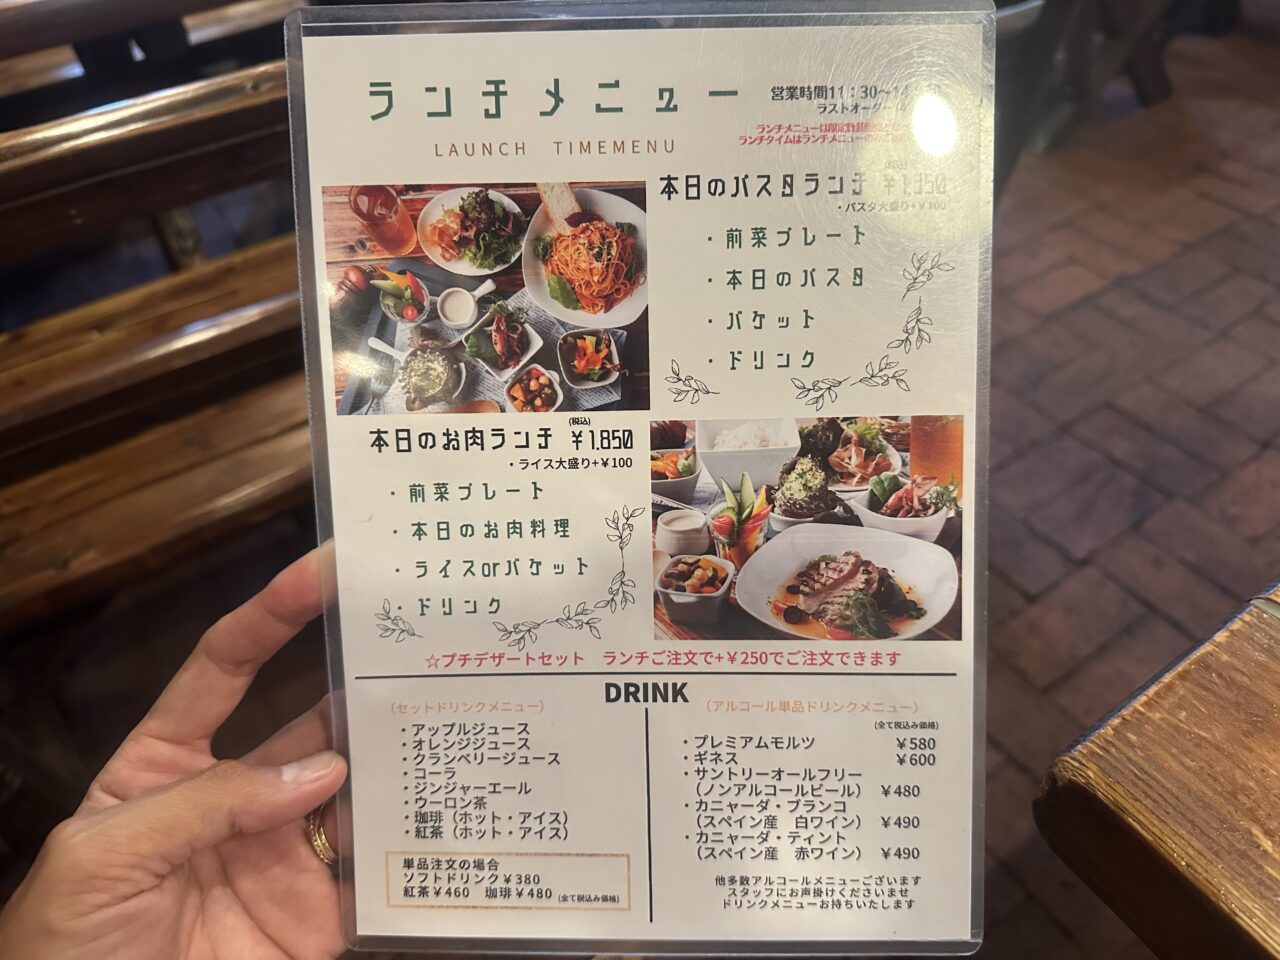 ランチメニュー
LAUNCH TIMEMENU
営業時間11：30～
ラストオーダー
ランチメニューは
ランチタイムはランチメニューの
本日のパスタランチ ￥1,350
・パスタ大盛り+￥100
・前菜プレート
・本日のパスタ
・バケット
・ドリンク
(税込)
本日のお肉ランチ ￥1,850
・ライス大盛り+￥100
・前菜プレート
・本日のお肉料理
・ライスorバケット
・ドリンク
☆プチデザートセット ランチご注文で+￥250でご注文できます
DRINK
（セットドリンクメニュー）
・アップルジュース
・オレンジジュース
・クランベリージュース
・コーラ
・ジンジャーエール
・ウーロン茶
・珈琲（ホット・アイス）
・紅茶（ホット・アイス）
単品注文の場合
ソフトドリンク￥380
紅茶￥460 珈琲￥480 (全て税込み価格)
（アルコール単品ドリンクメニュー）
(全て税込み価格)
・プレミアムモルツ ￥580
・ギネス ￥600
・サントリーオールフリー
（ノンアルコールビール） ￥480
・カニャーダ・ブランコ
（スペイン産 白ワイン） ￥490
・カニャーダ・ティント
（スペイン産 赤ワイン） ￥490
他多数アルコールメニューございます
スタッフにお声掛けくださいませ
ドリンクメニューお持ちいたします